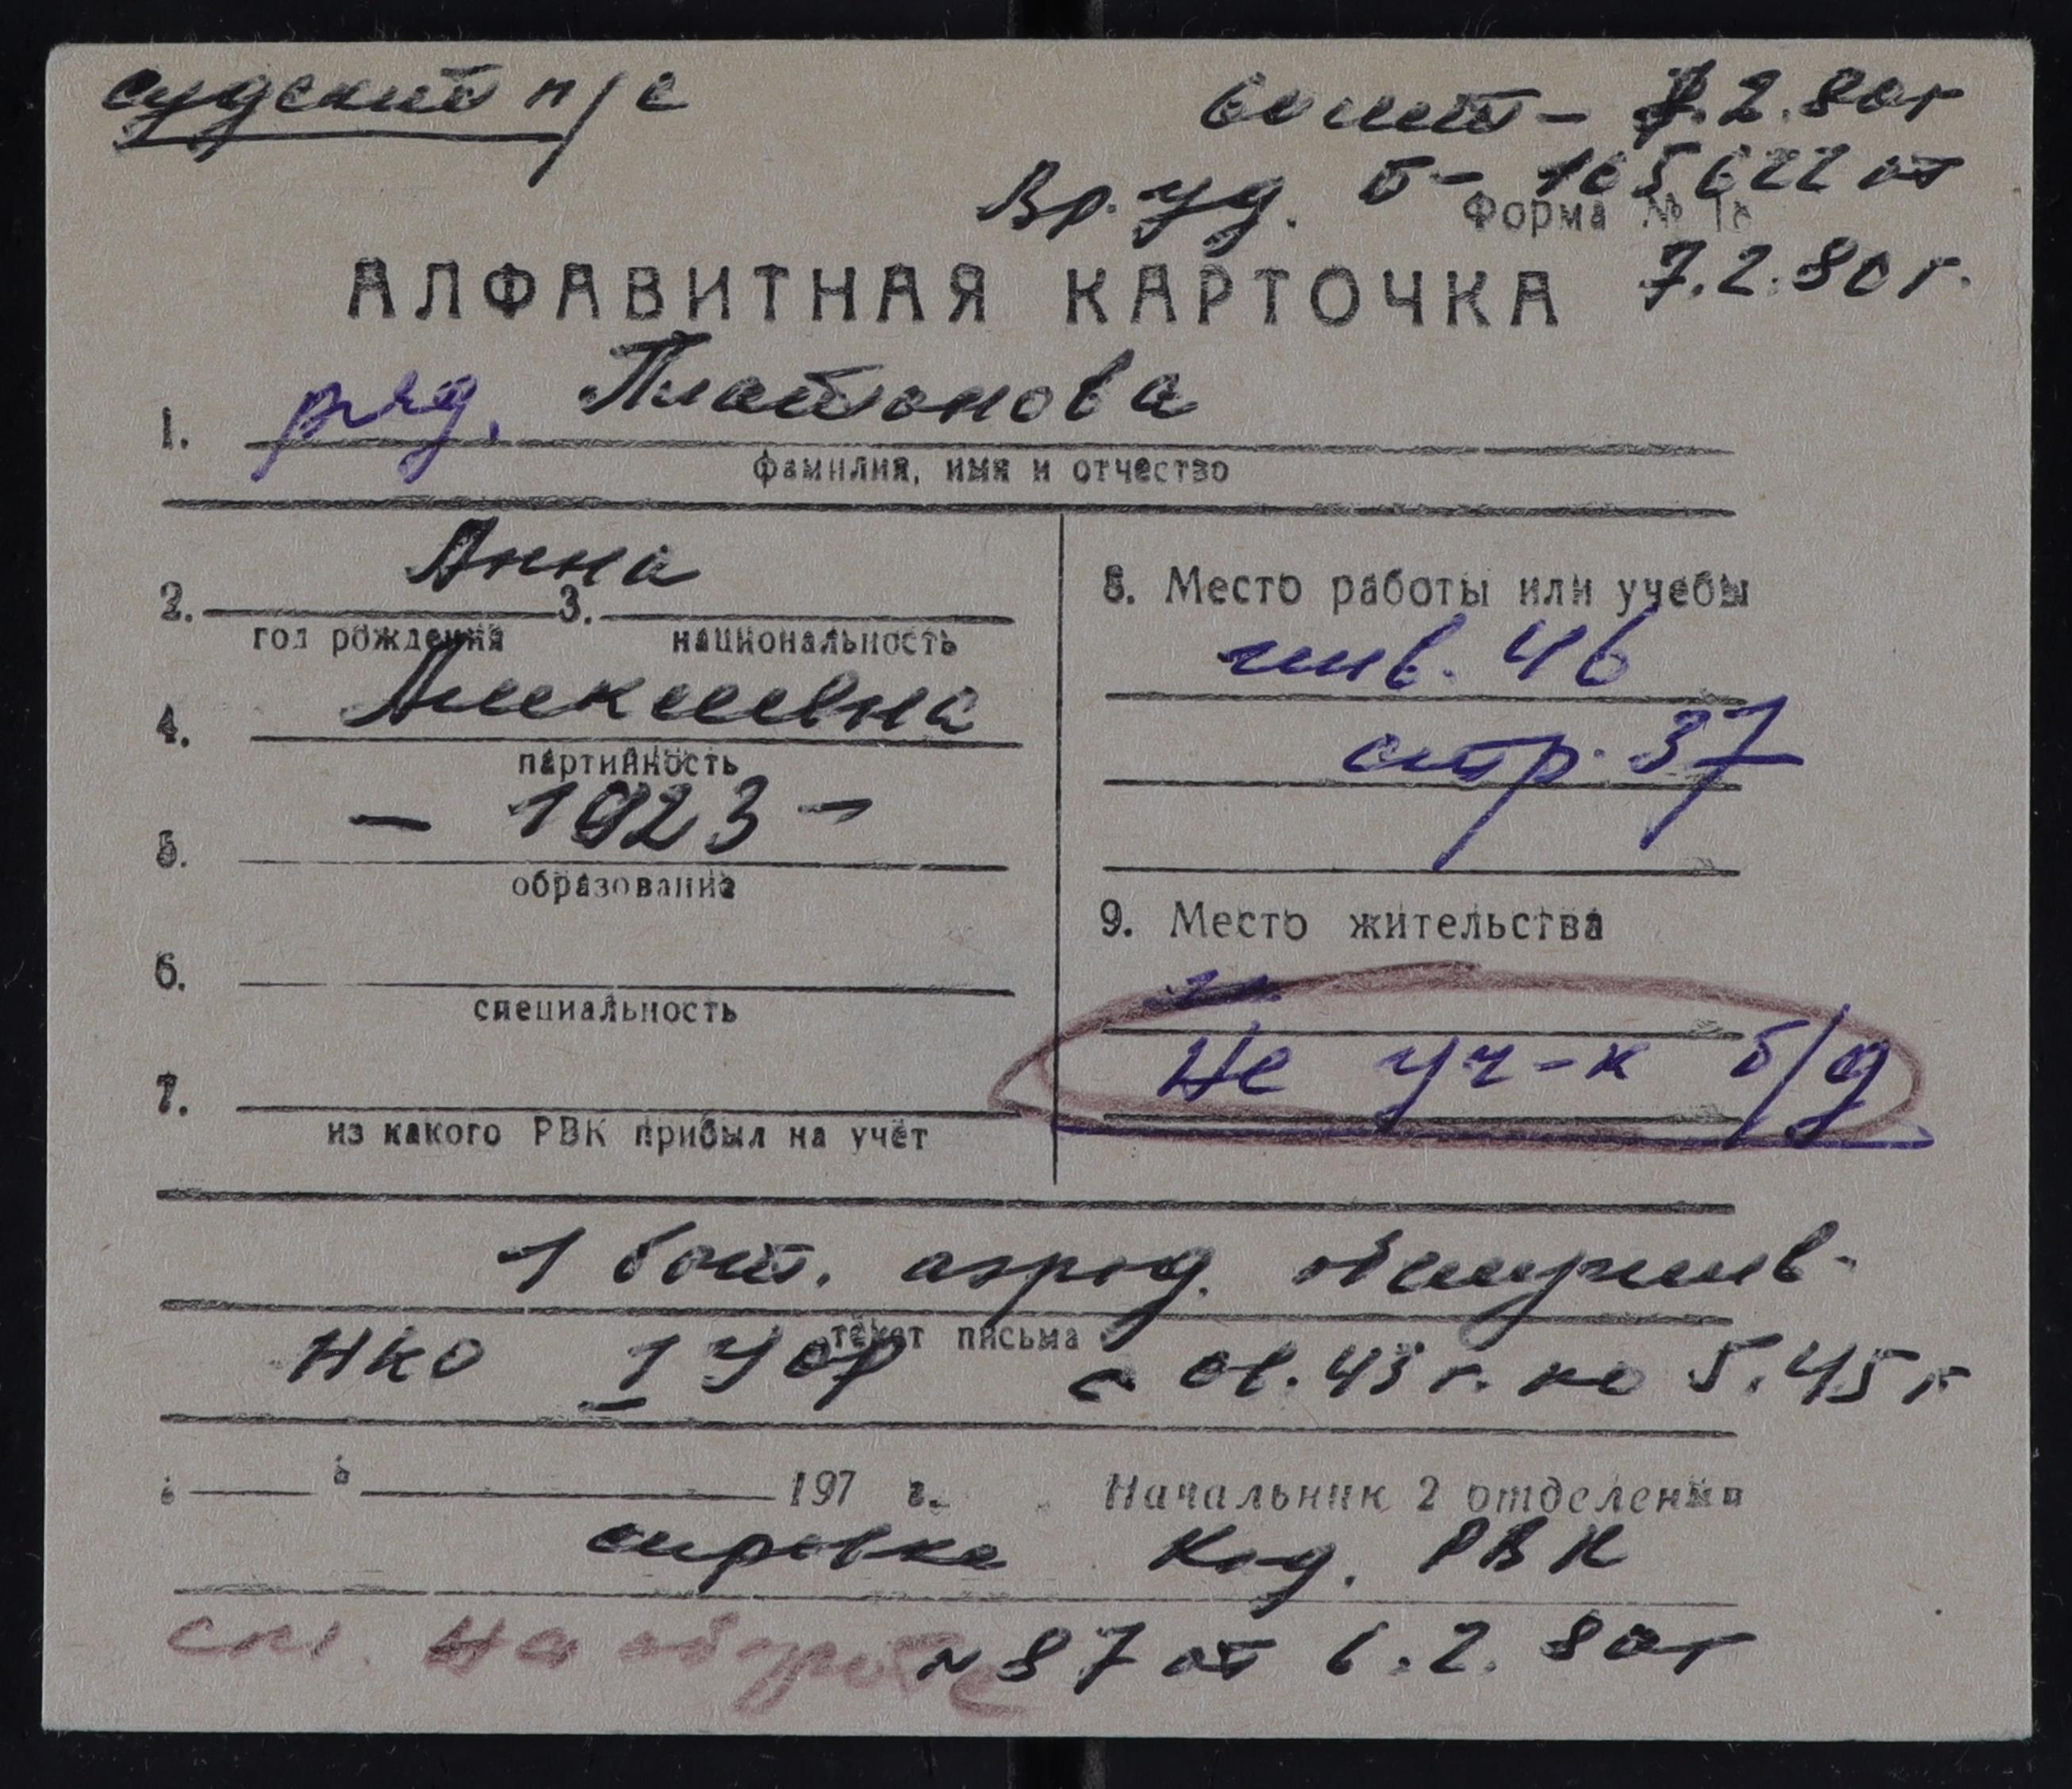 судский п/с
7.2.80г
Вр. уд. Б- 165622 от
Форма №
7.2.80 г.
АЛФАВИТНАЯ КАРТОЧКА
1. ряд. Платонова
фамилия, имя и отчество
Анна
2. 3.
год рождения национальность
Алексеевна
4.
партийность
- 1923 -
5.
образование
6.
специальность
7.
из какого РВК прибыл на учет
8. Место работы или учебы
инв. 46
стр. 37
9. Место жительства
Не уч-к б/д
1 бат. аэрод. обслужив.
текст письма
НКО I УОР с 01.43 г. по 5.45 г
197 г. Начальник 2 отделения
справка Кад. РВК
см. на обороте № 87 от 6.2.80г